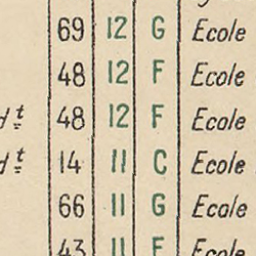 69 12 G Ecole
48 12 F Ecole
dt 48 12 F Ecole
dt 14 11 C Ecole
66 11 G Ecole
43 11 F Ecole